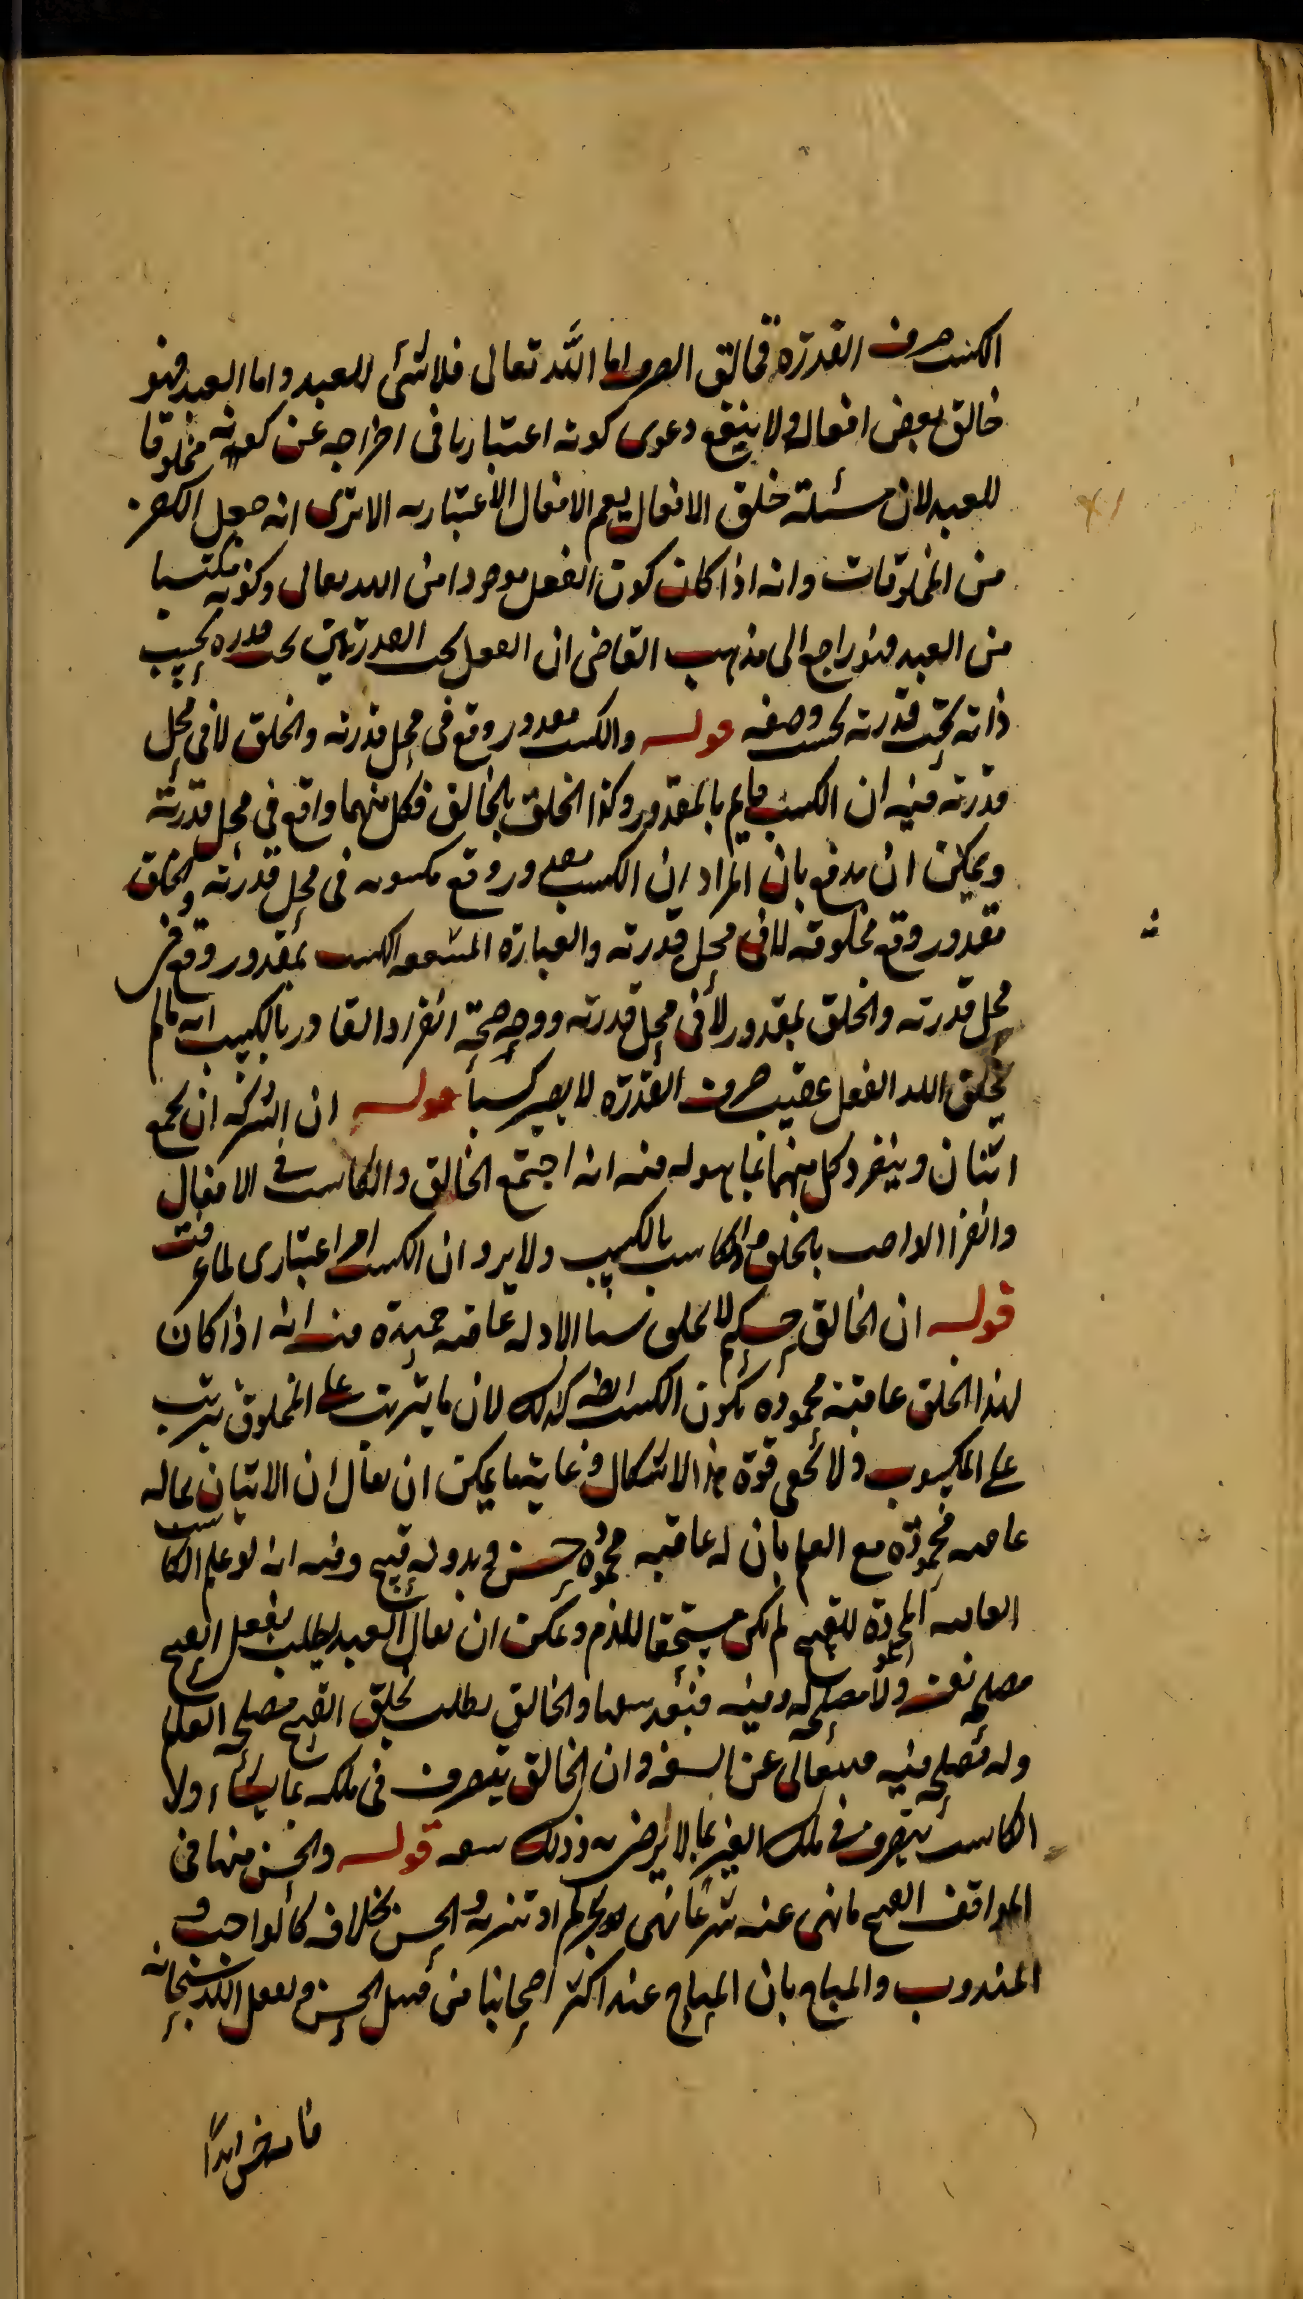 الكسب صرف القدرة فخالق الصرف اما الله تعالى فلا شئ للعبد واما العبد فهو
خالق بعض افعاله ولا ينفع دعوى كونه اعتباريا في اخراجه عن كونه مخلوقا
للعبد لان مسئلة خلق الافعال يعم الافعال الاعتباريه الا ترى انه جعل الكفر
من المخلوقات وانه اذا كان كون الفعل موجودا من الله تعالى وكونه مكتسبا
من العبد فهو راجع الى مذهب القاضى ان الفعل تحت القدرتين تحت قدره بحسب
ذاته تحت قدرته بحسب وصفه قوله والكسب مقدور وقع في محل قدرته والخلق لا في محل
قدرته فيه ان الكسب قايم بالمقدور وكذا الخلق بالخالق فكل منهما واقع في محل قدرته
ويمكن ان يدفع بان المراد ان الكسب مقدور وقع مكسوبه في محل قدرته والخلق
مقدور وقع مخلوقه لا في محل قدرته والعبارة الكسب بمقدور وقع في
محل قدرته والخلق بمقدور لا في محل قدرته ووجه صحة انفراد القادر بالكسب انه ما لم
يخلق الله الفعل عقيب صرف القدرة لا يصير كسبا قوله ان الشركة ان يجمع
اثنان وينفرد كل منهما بما هو له فيه انه اجتمع الخالق والكاسب في الافعال
وانفرد الواجب بالخلق والكاسب بالكسب ولا يرد ان الكسب امر اعتبارى لما عرفت
قوله ان الخالق حكيم لا يخلق شيئا الا وله عاقبة حميدة فيه انه اذا كان
لهذا الخلق عاقبة محموده يكون الكسب ايضا كذلك لان ما يترتب على المخلوق يترتب
على المكسوب ولا يخفى قوة هذا الاشكال وغايتها يمكن ان يقال ان الاتيان بما له
عاقبة محمودة مع العلم بان له عاقبة محموده حسن وبدونه قبيح وفيه انه لو علم الكاسب
العاقبة المحمودة للقبيح لم يكن مستحقا للذم ويمكن ان يقال العبد يطلب بفعل القبيح
مصلحة نفسه ولا مصلحة له وفيه والخالق يطلب بخلق القبيح مصلحة العالم
وله مصلحة فيه فيتعالى عن السفه وان الخالق يتصرف في ملكه بما يشاء ولا
الكاسب يتصرف في ملك الغير بما لا يرضى به وذلك سفه قوله والحسن منها في
المواقف القبيح ما نهى عنه شرعا نهى تحريم او تنزيه والحسن بخلافه كالواجب و
المندوب والمباح بان المباح عند اكثر اصحابنا من قبيل الحسن وفعل الله سبحانه